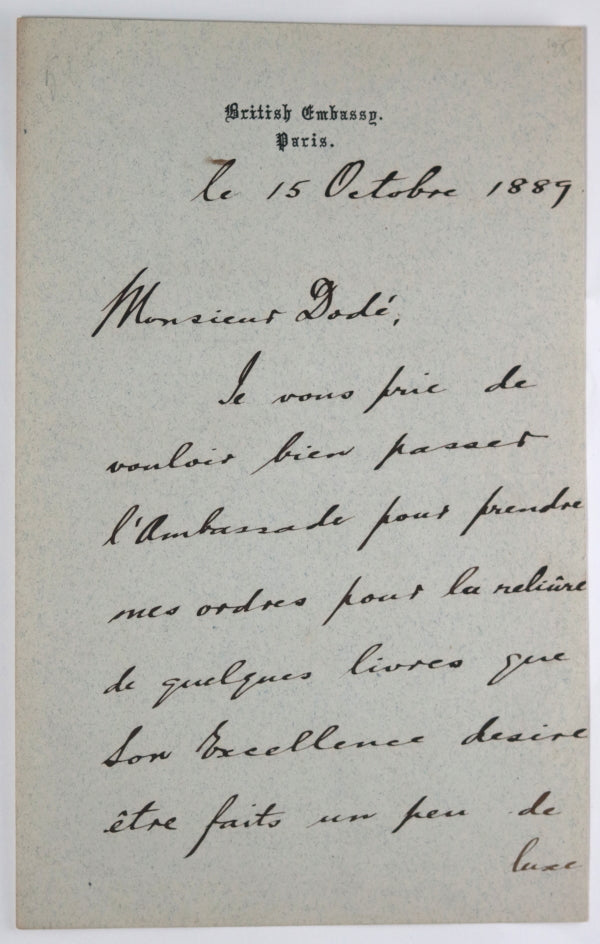 British Embassy.
Paris.
le 15 Octobre 1889
Monsieur Dodé,
Je vous prie de
vouloir bien passer
l'Ambassade pour prendre
mes ordres pour la reliûre
de quelques livres que
Son Excellence desire
être faits un peu de
luxe